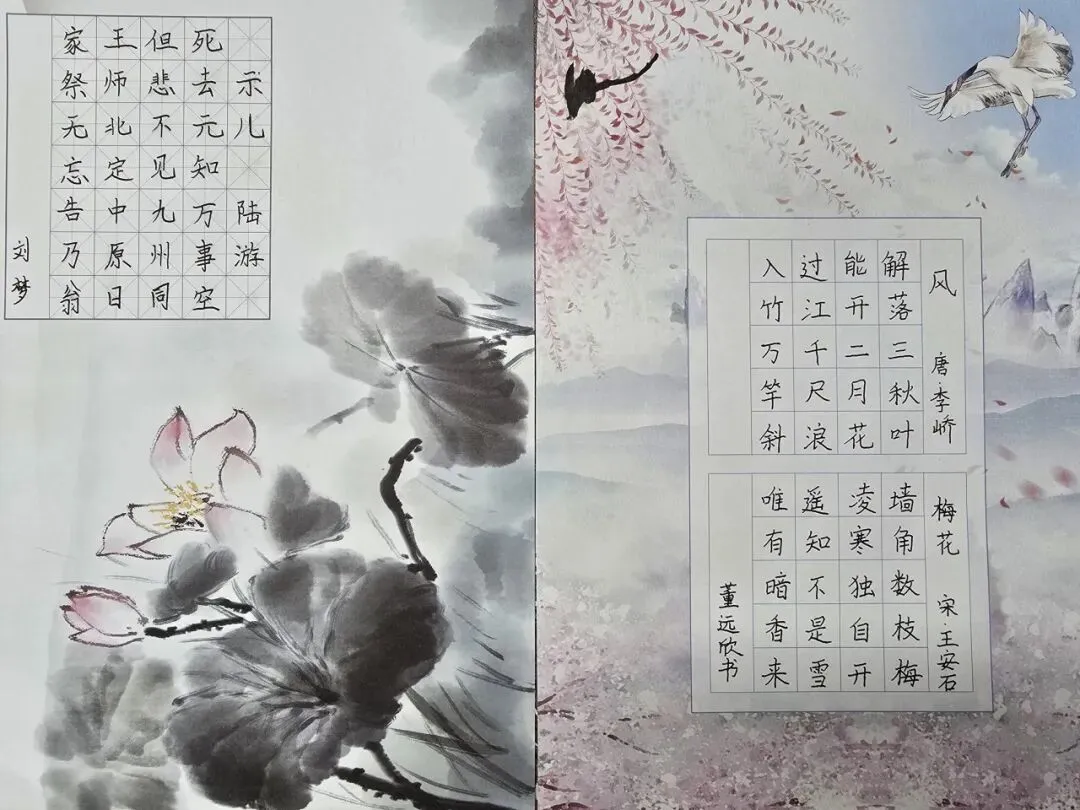 示儿 陆游
死去元知万事空
但悲不见九州同
王师北定中原日
家祭无忘告乃翁
刘梦
风 唐·李峤
解落三秋叶
能开二月花
过江千尺浪
入竹万竿斜
梅花 宋·王安石
墙角数枝梅
凌寒独自开
遥知不是雪
唯有暗香来
董远欣书